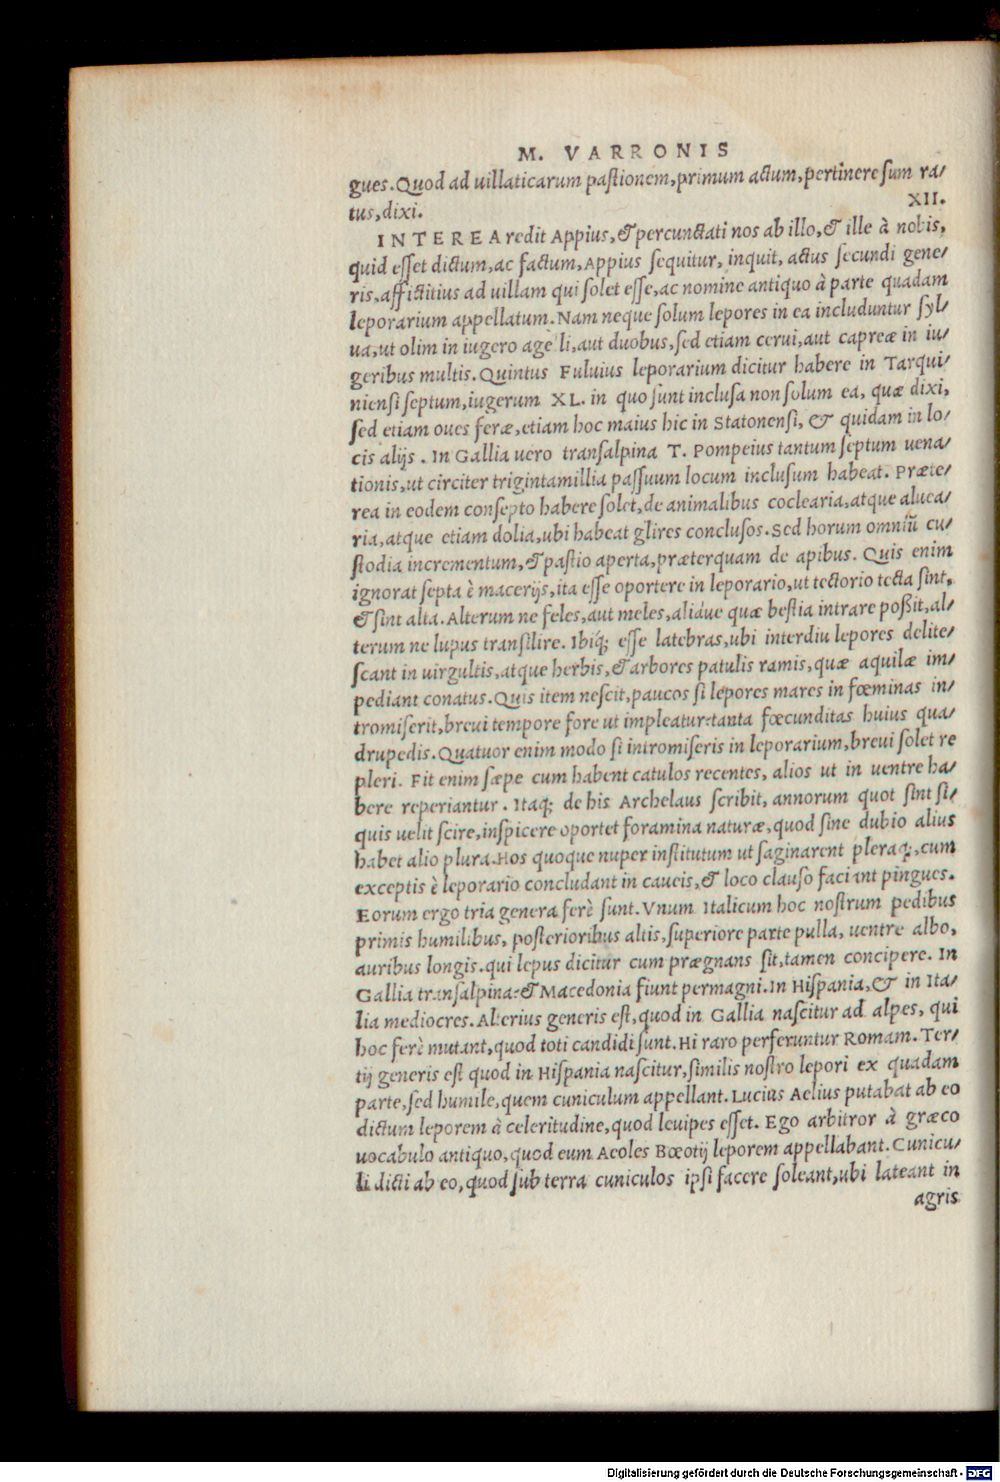 M. VARRONIS
gues. Quod ad uillaticarum pastionem, primum actum, pertinere sum ra/
tus, dixi. XII.
INTEREA redit Appius, & percunctati nos ab illo, & ille à nobis,
quid esset dictum, ac factum, Appius sequitur, inquit, actus secundi gene/
ris, affictitius ad uillam qui solet esse, ac nomine antiquo à parte quadam
leporarium appellatum. Nam neque solum lepores in ea includuntur syl/
ua, ut olim in iugero agelli, aut duobus, sed etiam cerui, aut capreæ in iu/
geribus multis. Quintus Fuluius leporarium dicitur habere in Tarqui/
niensi septum, iugerum XL. in quo sunt inclusa non solum ea, quæ dixi,
sed etiam oues feræ, etiam hoc maius hic in Statonensi, & quidam in lo/
cis alijs. In Gallia uero transalpina T. Pompeius tantum septum uena/
tionis, ut circiter trigintamillia passuum locum inclusum habeat. Præte/
rea in eodem consepto habere solet, de animalibus coclearia, atque aluea/
ria, atque etiam dolia, ubi habeat glires conclusos. Sed horum omniũ cu/
stodia incrementum, & pastio aperta, præterquam de apibus. Quis enim
ignorat septa è macerijs, ita esse oportere in leporario, ut tectorio tecta sint,
& sint alta. Alterum ne feles, aut meles, aliáue quæ bestia intrare poßit, al/
terum ne lupus transilire. Ibiq́; esse latebras, ubi interdiu lepores delite/
scant in uirgultis, atque herbis, & arbores patulis ramis, quæ aquilæ im/
pediant conatus. Quis item nescit, paucos si lepores mares in fœminas in/
tromiserit, breui tempore fore ut impleatur: tanta fœcunditas huius qua/
drupedis. Quatuor enim modo si intromiseris in leporarium, breui solet re
pleri. Fit enim sæpe cum habent catulos recentes, alios ut in uentre ha/
bere reperiantur. Itaq; de his Archelaus scribit, annorum quot sint si/
quis uelit scire, inspicere oportet foramina naturæ, quod sine dubio alius
habet alio plura. Hos quoque nuper institutum ut saginarent pleraq;, cum
exceptis è leporario concludant in caueis, & loco clauso faciant pingues.
Eorum ergo tria genera ferè sunt. Vnum Italicum hoc nostrum pedibus
primis humilibus, posterioribus altis, superiore parte pulla, uentre albo,
auribus longis. qui lepus dicitur cum prægnans sit, tamen concipere. In
Gallia transalpina: & Macedonia fiunt permagni. In Hispania, & in Ita/
lia mediocres. Alterius generis est, quod in Gallia nascitur ad alpes, qui
hoc ferè mutant, quod toti candidi sunt. Hi raro perferuntur Romam. Ter/
tij generis est quod in Hispania nascitur, similis nostro lepori ex quadam
parte, sed humile, quem cuniculum appellant. Lucius Aelius putabat ab eo
dictum leporem à celeritudine, quod leuipes esset. Ego arbitror à græco
uocabulo antiquo, quod eum Aeoles Bœotij leporem appellabant. Cunicu/
li dicti ab eo, quod sub terra cuniculos ipsi facere soleant, ubi lateant in
agris
Digitalisierung gefördert durch die Deutsche Forschungsgemeinschaft - DFG